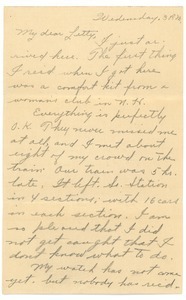 Wednesday, 3 P.M.
My dear Letty,
I just ar-
rived here. The first thing
I recd when I got here
was a comfort kit from a
womans club in N.H.
Everything is perfectly
O.K. They never missed me
at all, and I met about
eight of my crowd on the
train. Our train was 5 hrs.
late. It left So. Station
in 4 sections, with 16 cars
in each section. I am
so pleased that I did
not get caught that I
dont know what to do.
My watch has not come
yet, but nobody has recd.